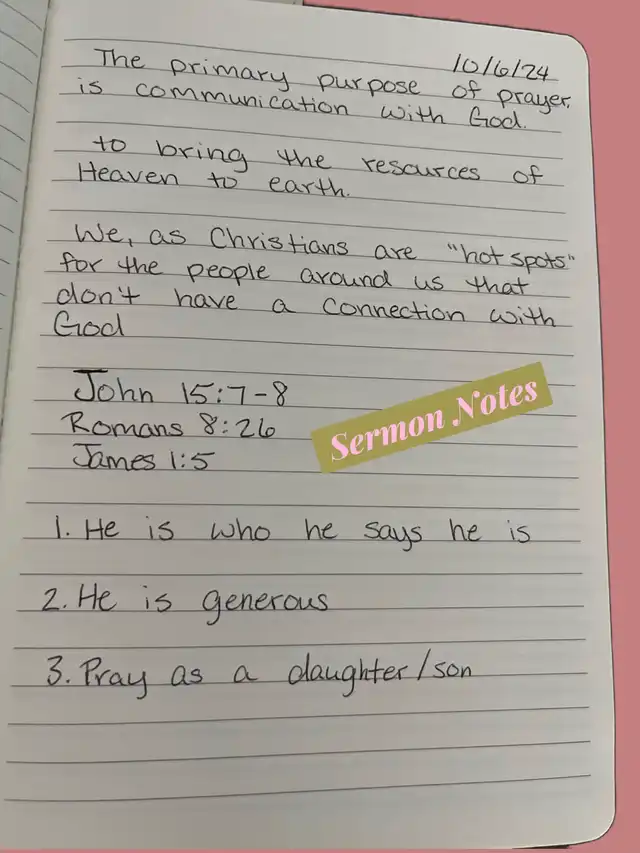 10/6/24
The primary purpose of prayer.
is communication with God.
to bring the resources of
Heaven to earth.
We, as Christians are "hot spots"
for the people around us that
don't have a connection with
God
John 15:7-8
Romans 8:26
James 1:5
Sermon Notes
1. He is who he says he is
2. He is generous
3. Pray as a daughter/son